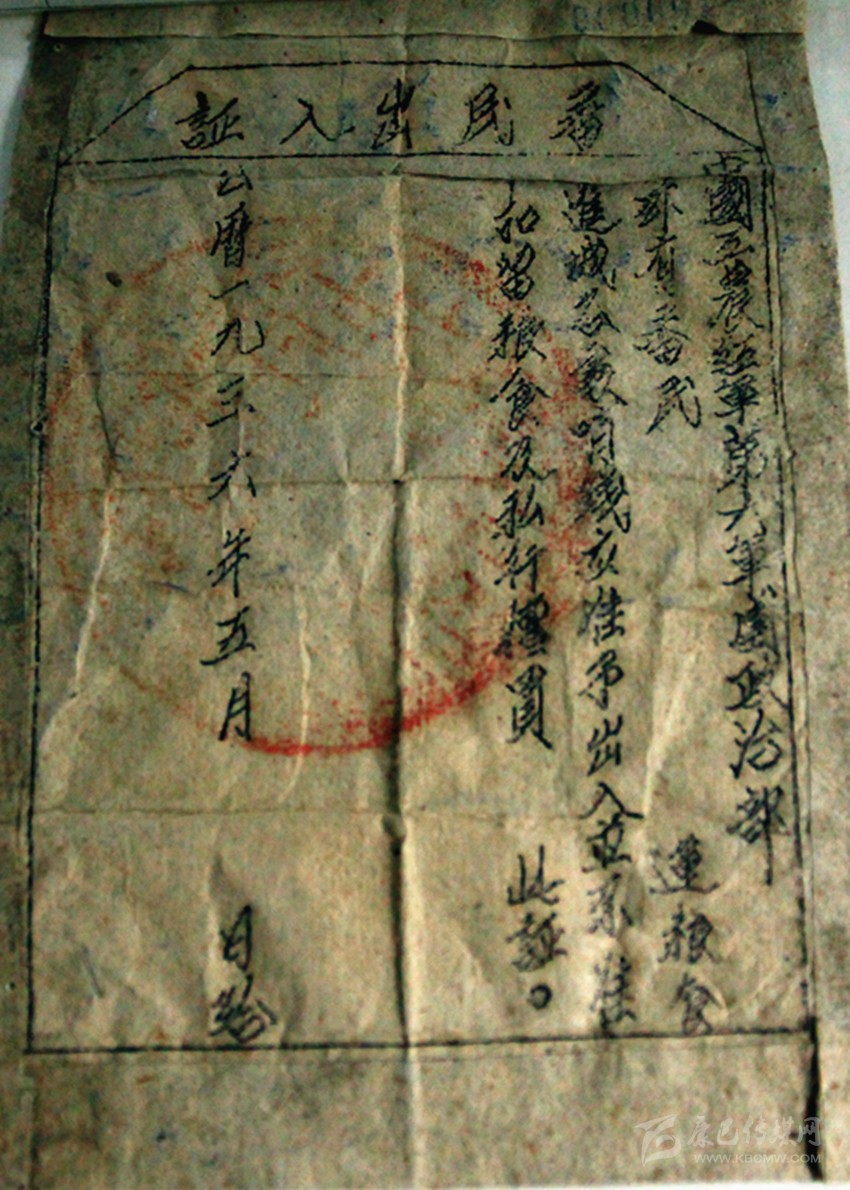 番民出入証
中國工農紅軍第六軍團政治部
茲有番民 運粮食
進城各處哨綫准予出入並不准
扣留粮食及私行擅買 此証。
公曆一九三六年五月 日發
康巴传媒网
WWW.KBCMW.COM